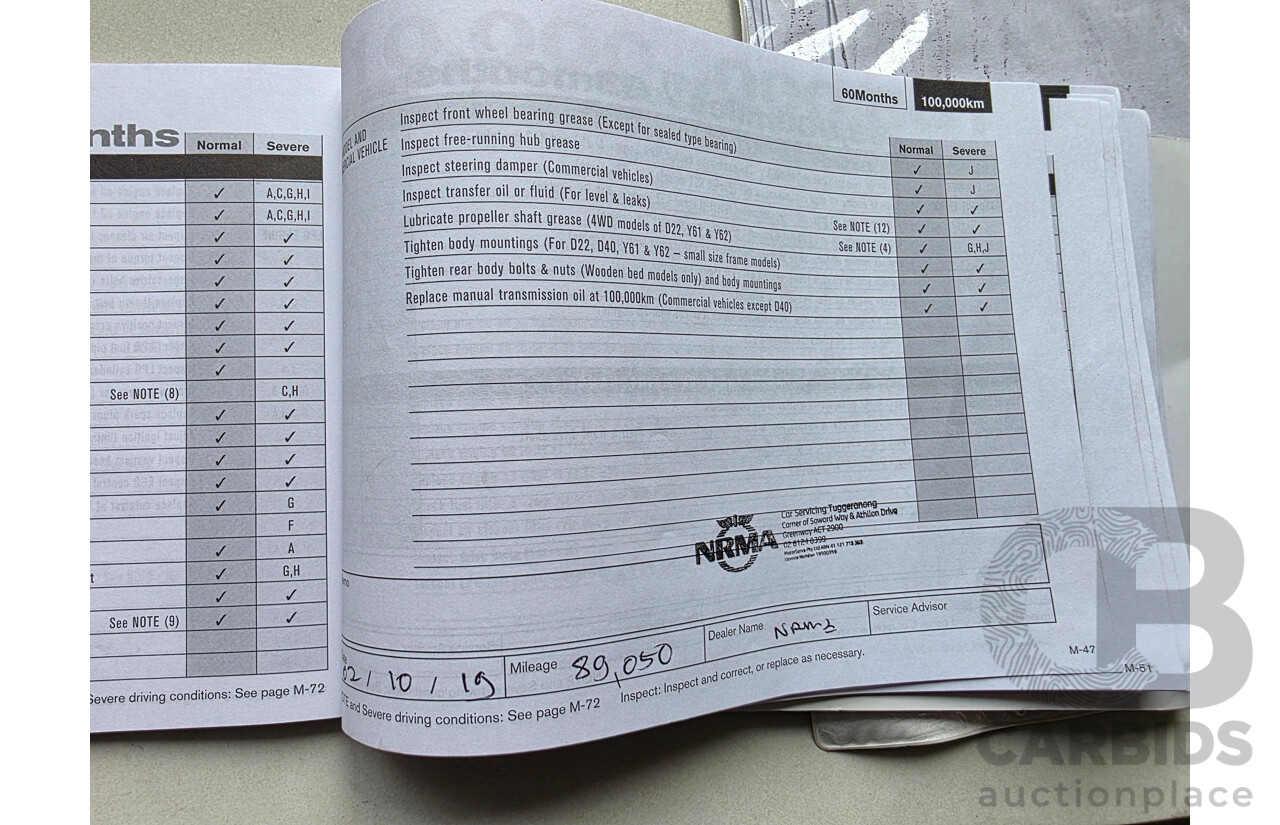 nths
Normal Severe
✓ A,C,G,H,I
✓ A,C,G,H,I
✓ ✓
✓ ✓
✓ ✓
✓ ✓
✓ ✓
✓ ✓
✓
See NOTE (8) C,H
✓ ✓
✓ ✓
✓ ✓
✓ ✓
✓ G
F
✓ A
t ✓ G,H
✓ ✓
See NOTE (9) ✓ ✓
Severe driving conditions: See page M-72
60Months 100,000km
Normal Severe
Inspect front wheel bearing grease (Except for sealed type bearing) ✓ J
Inspect free-running hub grease ✓ J
Inspect steering damper (Commercial vehicles) ✓ ✓
Inspect transfer oil or fluid (For level & leaks) See NOTE (12) ✓ ✓
Lubricate propeller shaft grease (4WD models of D22, Y61 & Y62) See NOTE (4) ✓ G,H,J
Tighten body mountings (For D22, D40, Y61 & Y62 – small size frame models) ✓ ✓
Tighten rear body bolts & nuts (Wooden bed models only) and body mountings ✓ ✓
Replace manual transmission oil at 100,000km (Commercial vehicles except D40) ✓ ✓
AND
VEHICLE
NRMA
Car Servicing Tuggeranong
Corner of Soward Way & Athllon Drive
Greenway ACT 2900
02 6124 0399
2/10/19
Mileage 89,050
Dealer Name NRMA
Service Advisor
and Severe driving conditions: See page M-72
Inspect: Inspect and correct, or replace as necessary.
M-47
M-51
CB
CARBIDS
auctionplace